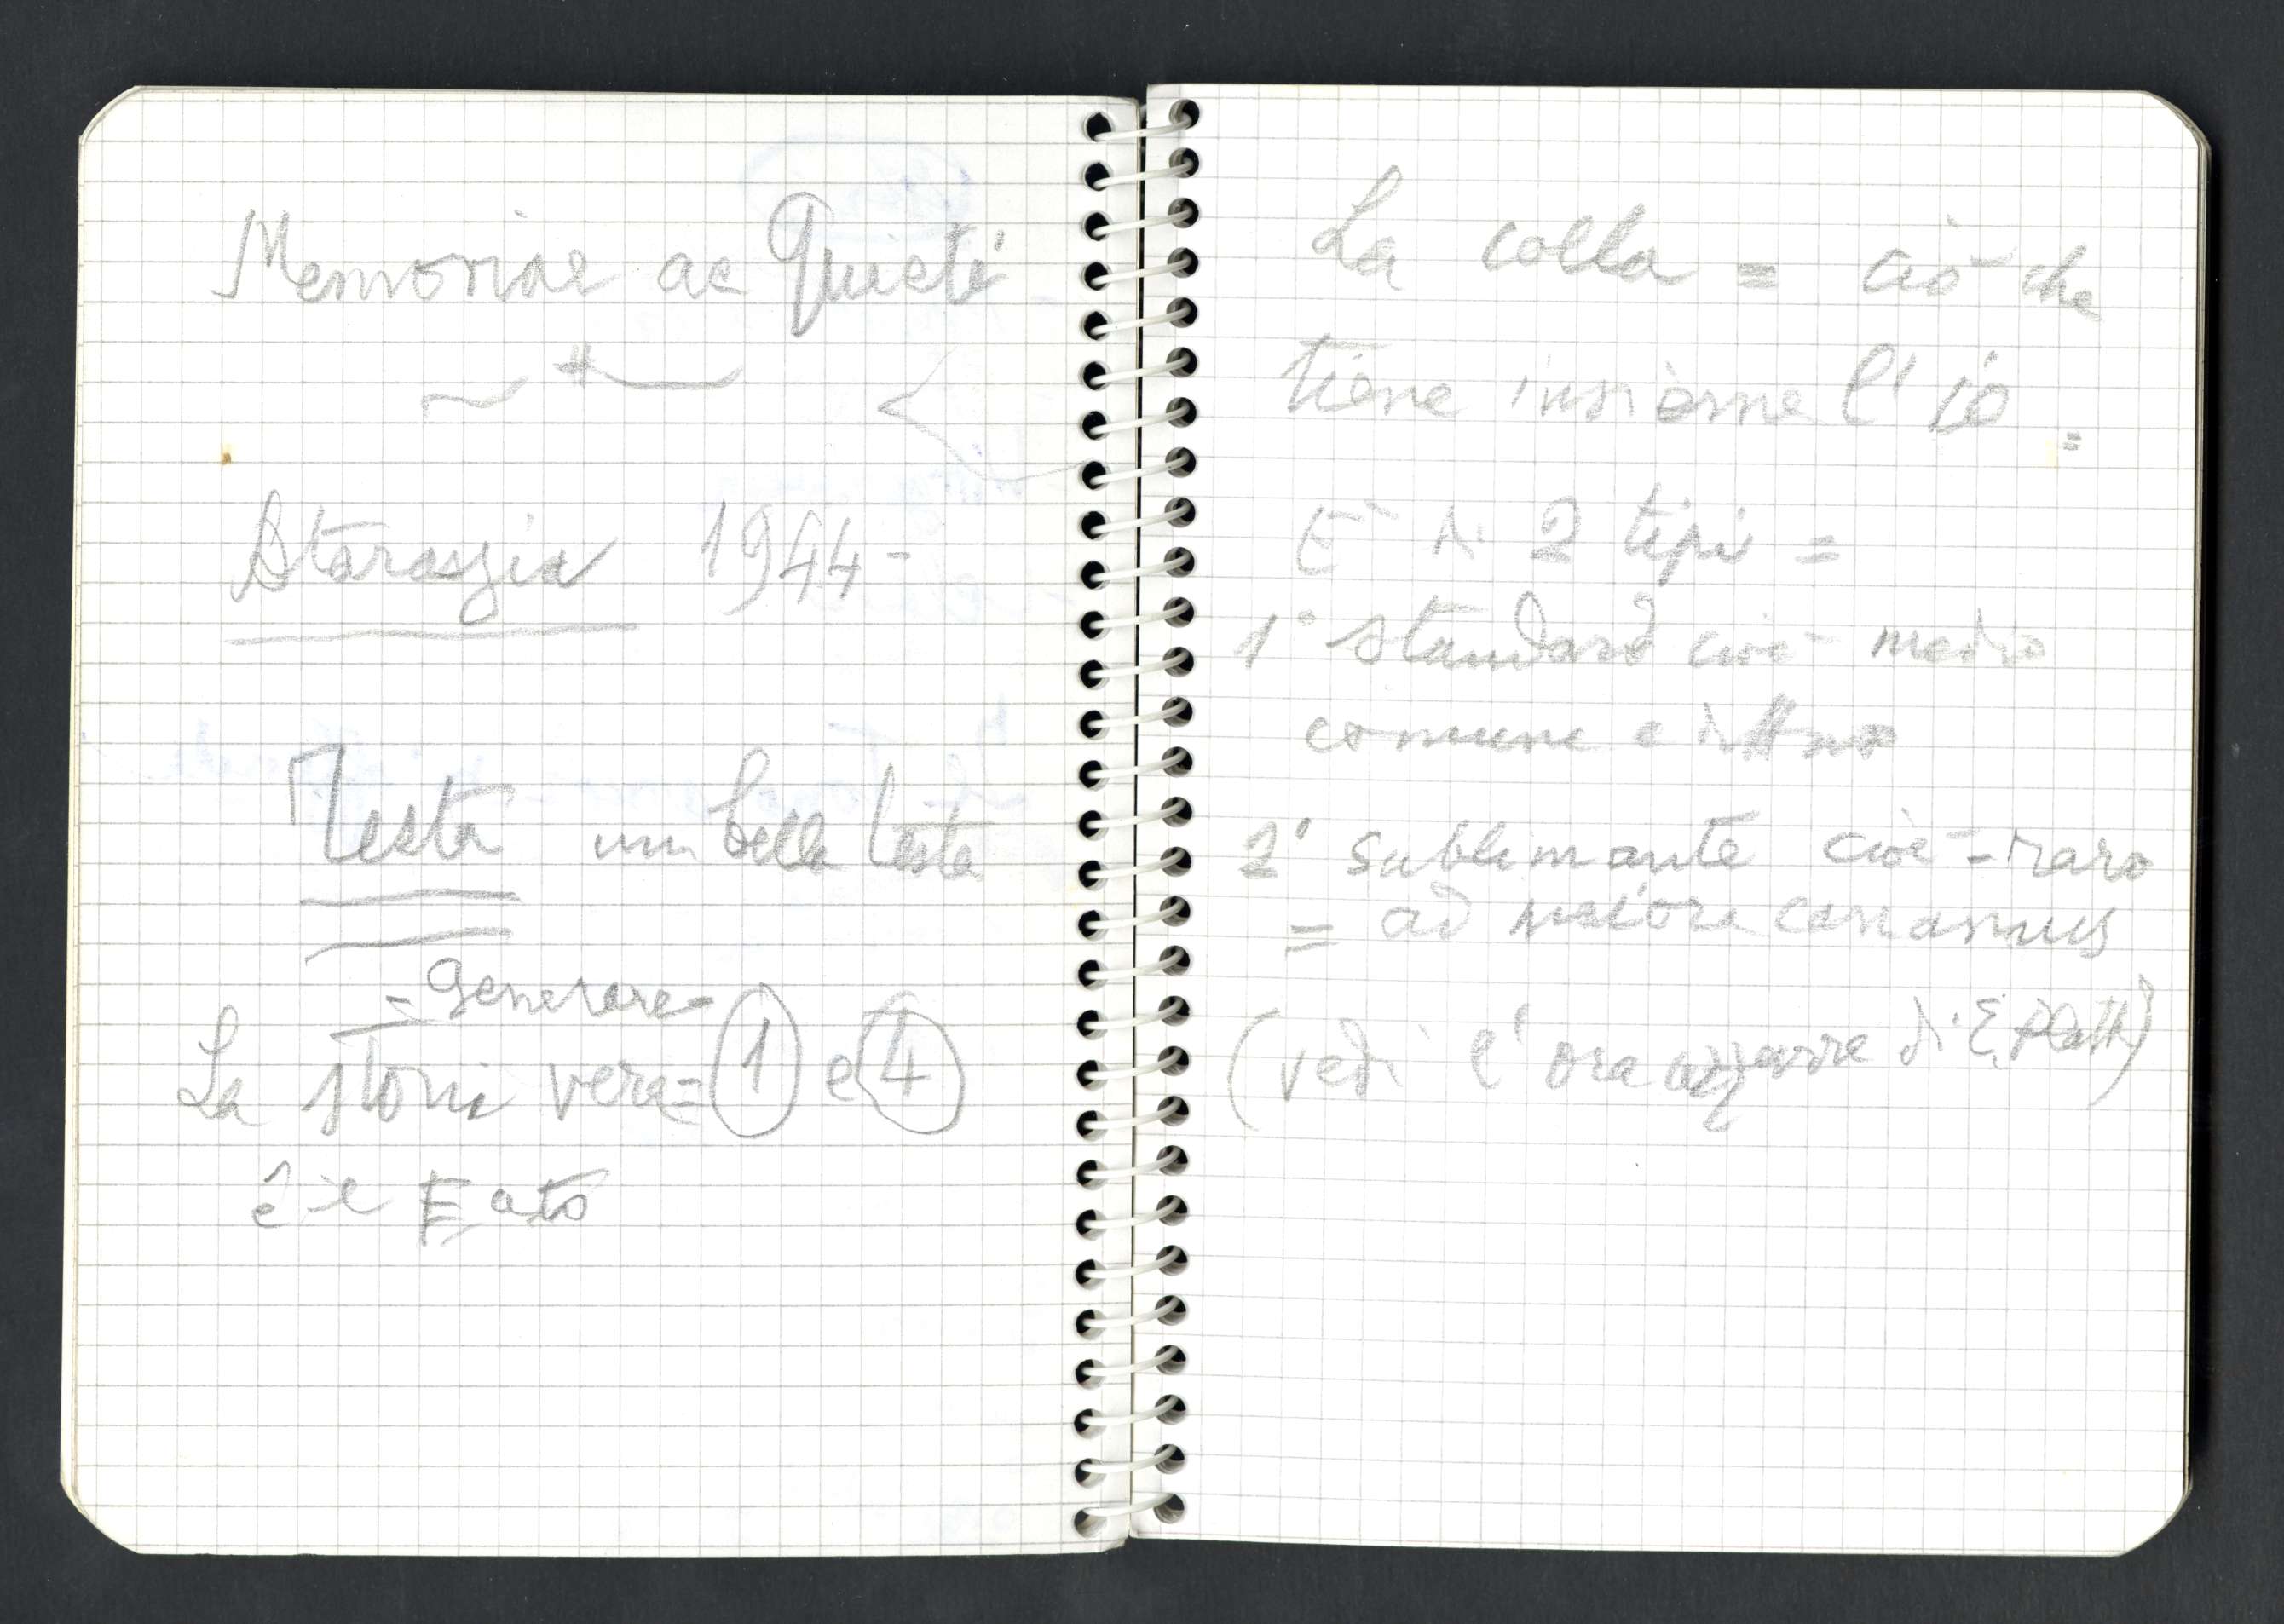 Memoriae ac Quieti
Atarassia 1944-
Testa una bella testa
- Generare -
La storia vera = 1 e 4
è il Fato
La colla = ciò che
tiene insieme l'io =
E' di 2 tipi =
1° standard cioè medio
comune e
2° sublimante cioè - raro
= ad maiora canamus
(vedi l'ora azzurra di S. Plath)